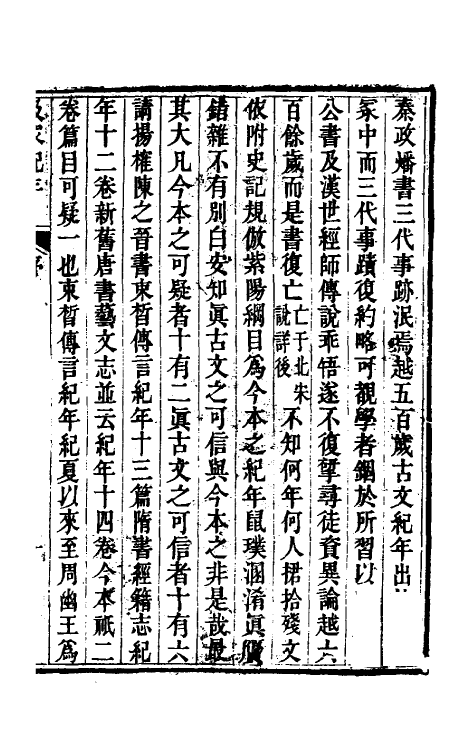 秦政燔書三代事跡泯焉越五百歲古文紀年出
冢中而三代事蹟復約略可覩學者錮於所習以
公書及漢世經師傳說乖牾遂不復㨶尋徒資異論越六
百餘歲而是書復亡亡于北宋說詳後不知何年何人捃拾殘文
依附史記規倣紫陽綱目爲今本之紀年鼠璞溷淆眞贗
錯雜不有別白安知眞古文之可信與今本之非是哉最
其大凡今本之可疑者十有二眞古文之可信者十有六
請揚榷陳之晉書束晳傳言紀年十三篇隋書經籍志紀
年十二卷新舊唐書藝文志並云紀年十四卷今本祇二
卷篇目可疑一也束晳傳言紀年紀夏以來至周幽王爲
冢紀年
序